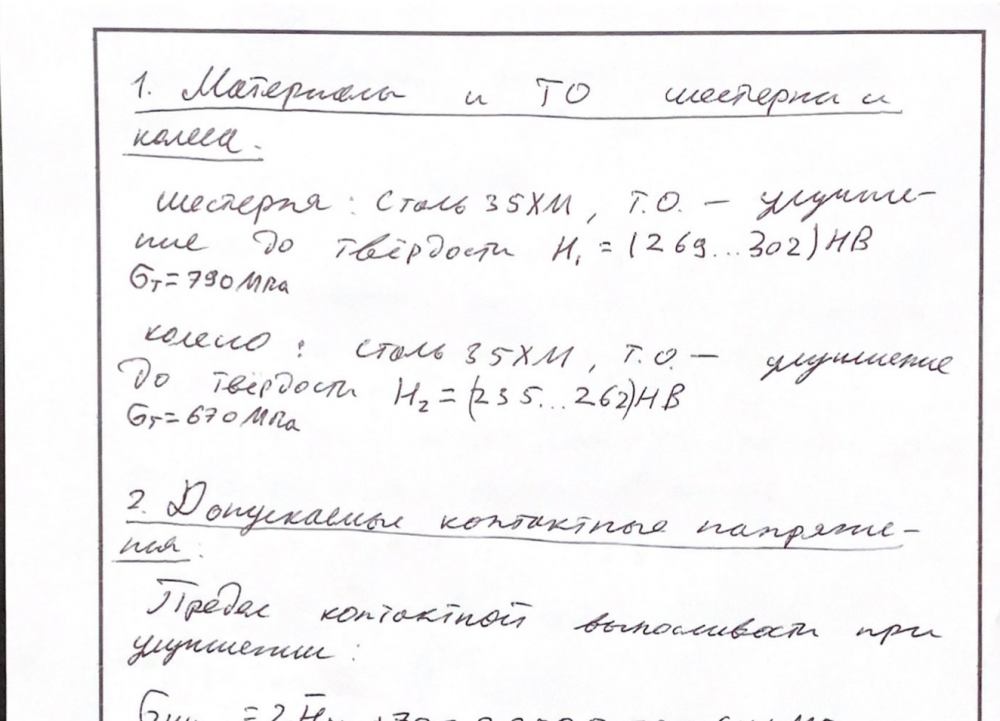 1. Материалы и ТО шестерни и
колеса.
шестерня: Сталь 35ХМ, Т.О. – улучше-
ние до твёрдости H₁ = (269...302)HB
σт=790МПа
колесо: сталь 35ХМ, Т.О. – улучшение
до твёрдости H₂ = (235...262)HB
σт=670МПа
2. Допускаемые контактные напряже-
ния:
Предел контактной выносливости при
улучшении: